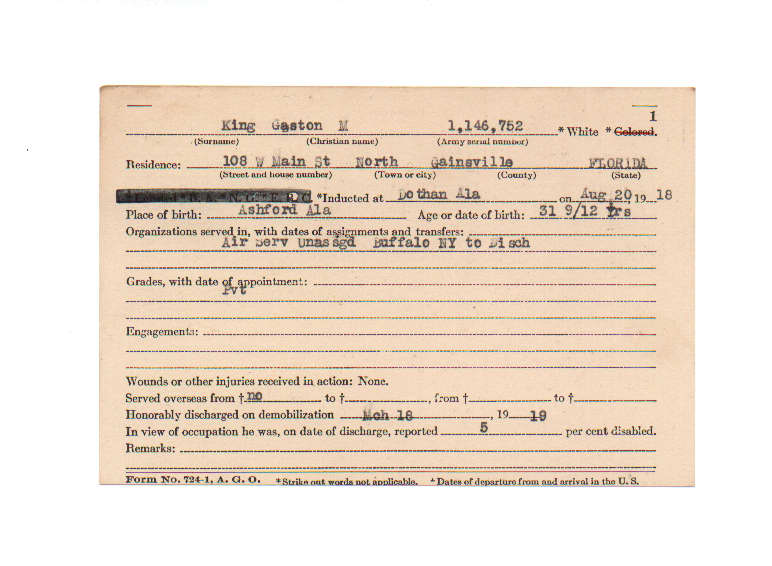 1
King Gaston M 1,146,752 *White *Colored.
(Surname) (Christian name) (Army serial number)
Residence: 108 W Main St North Gainsville FLORIDA
(Street and house number) (Town or city) (County) (State)
*Inducted at Dothan Ala on Aug 20, 19 18
Place of birth: Ashford Ala Age or date of birth: 31 9/12 Yrs
Organizations served in, with dates of assignments and transfers:
Air Serv Unassgd Buffalo NY to Disch
Grades, with date of appointment:
Pvt
Engagements:
Wounds or other injuries received in action: None.
Served overseas from † no to †, from † to †
Honorably discharged on demobilization Mch 18, 19 19
In view of occupation he was, on date of discharge, reported 5 per cent disabled.
Remarks:
Form No. 724-1, A. G. O. *Strike out words not applicable. †Dates of departure from and arrival in the U. S.